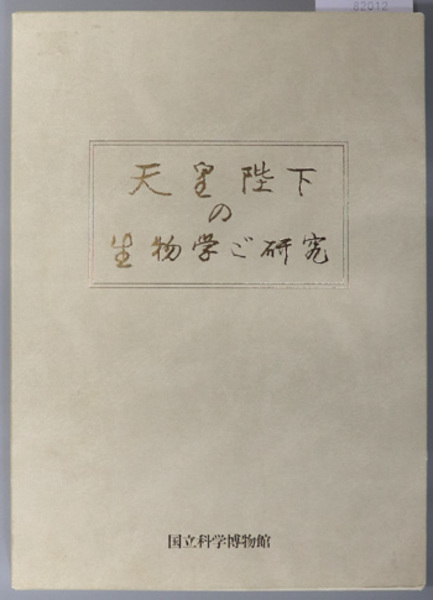 82012
天皇陛下
の
生物学ご研究
国立科学博物館